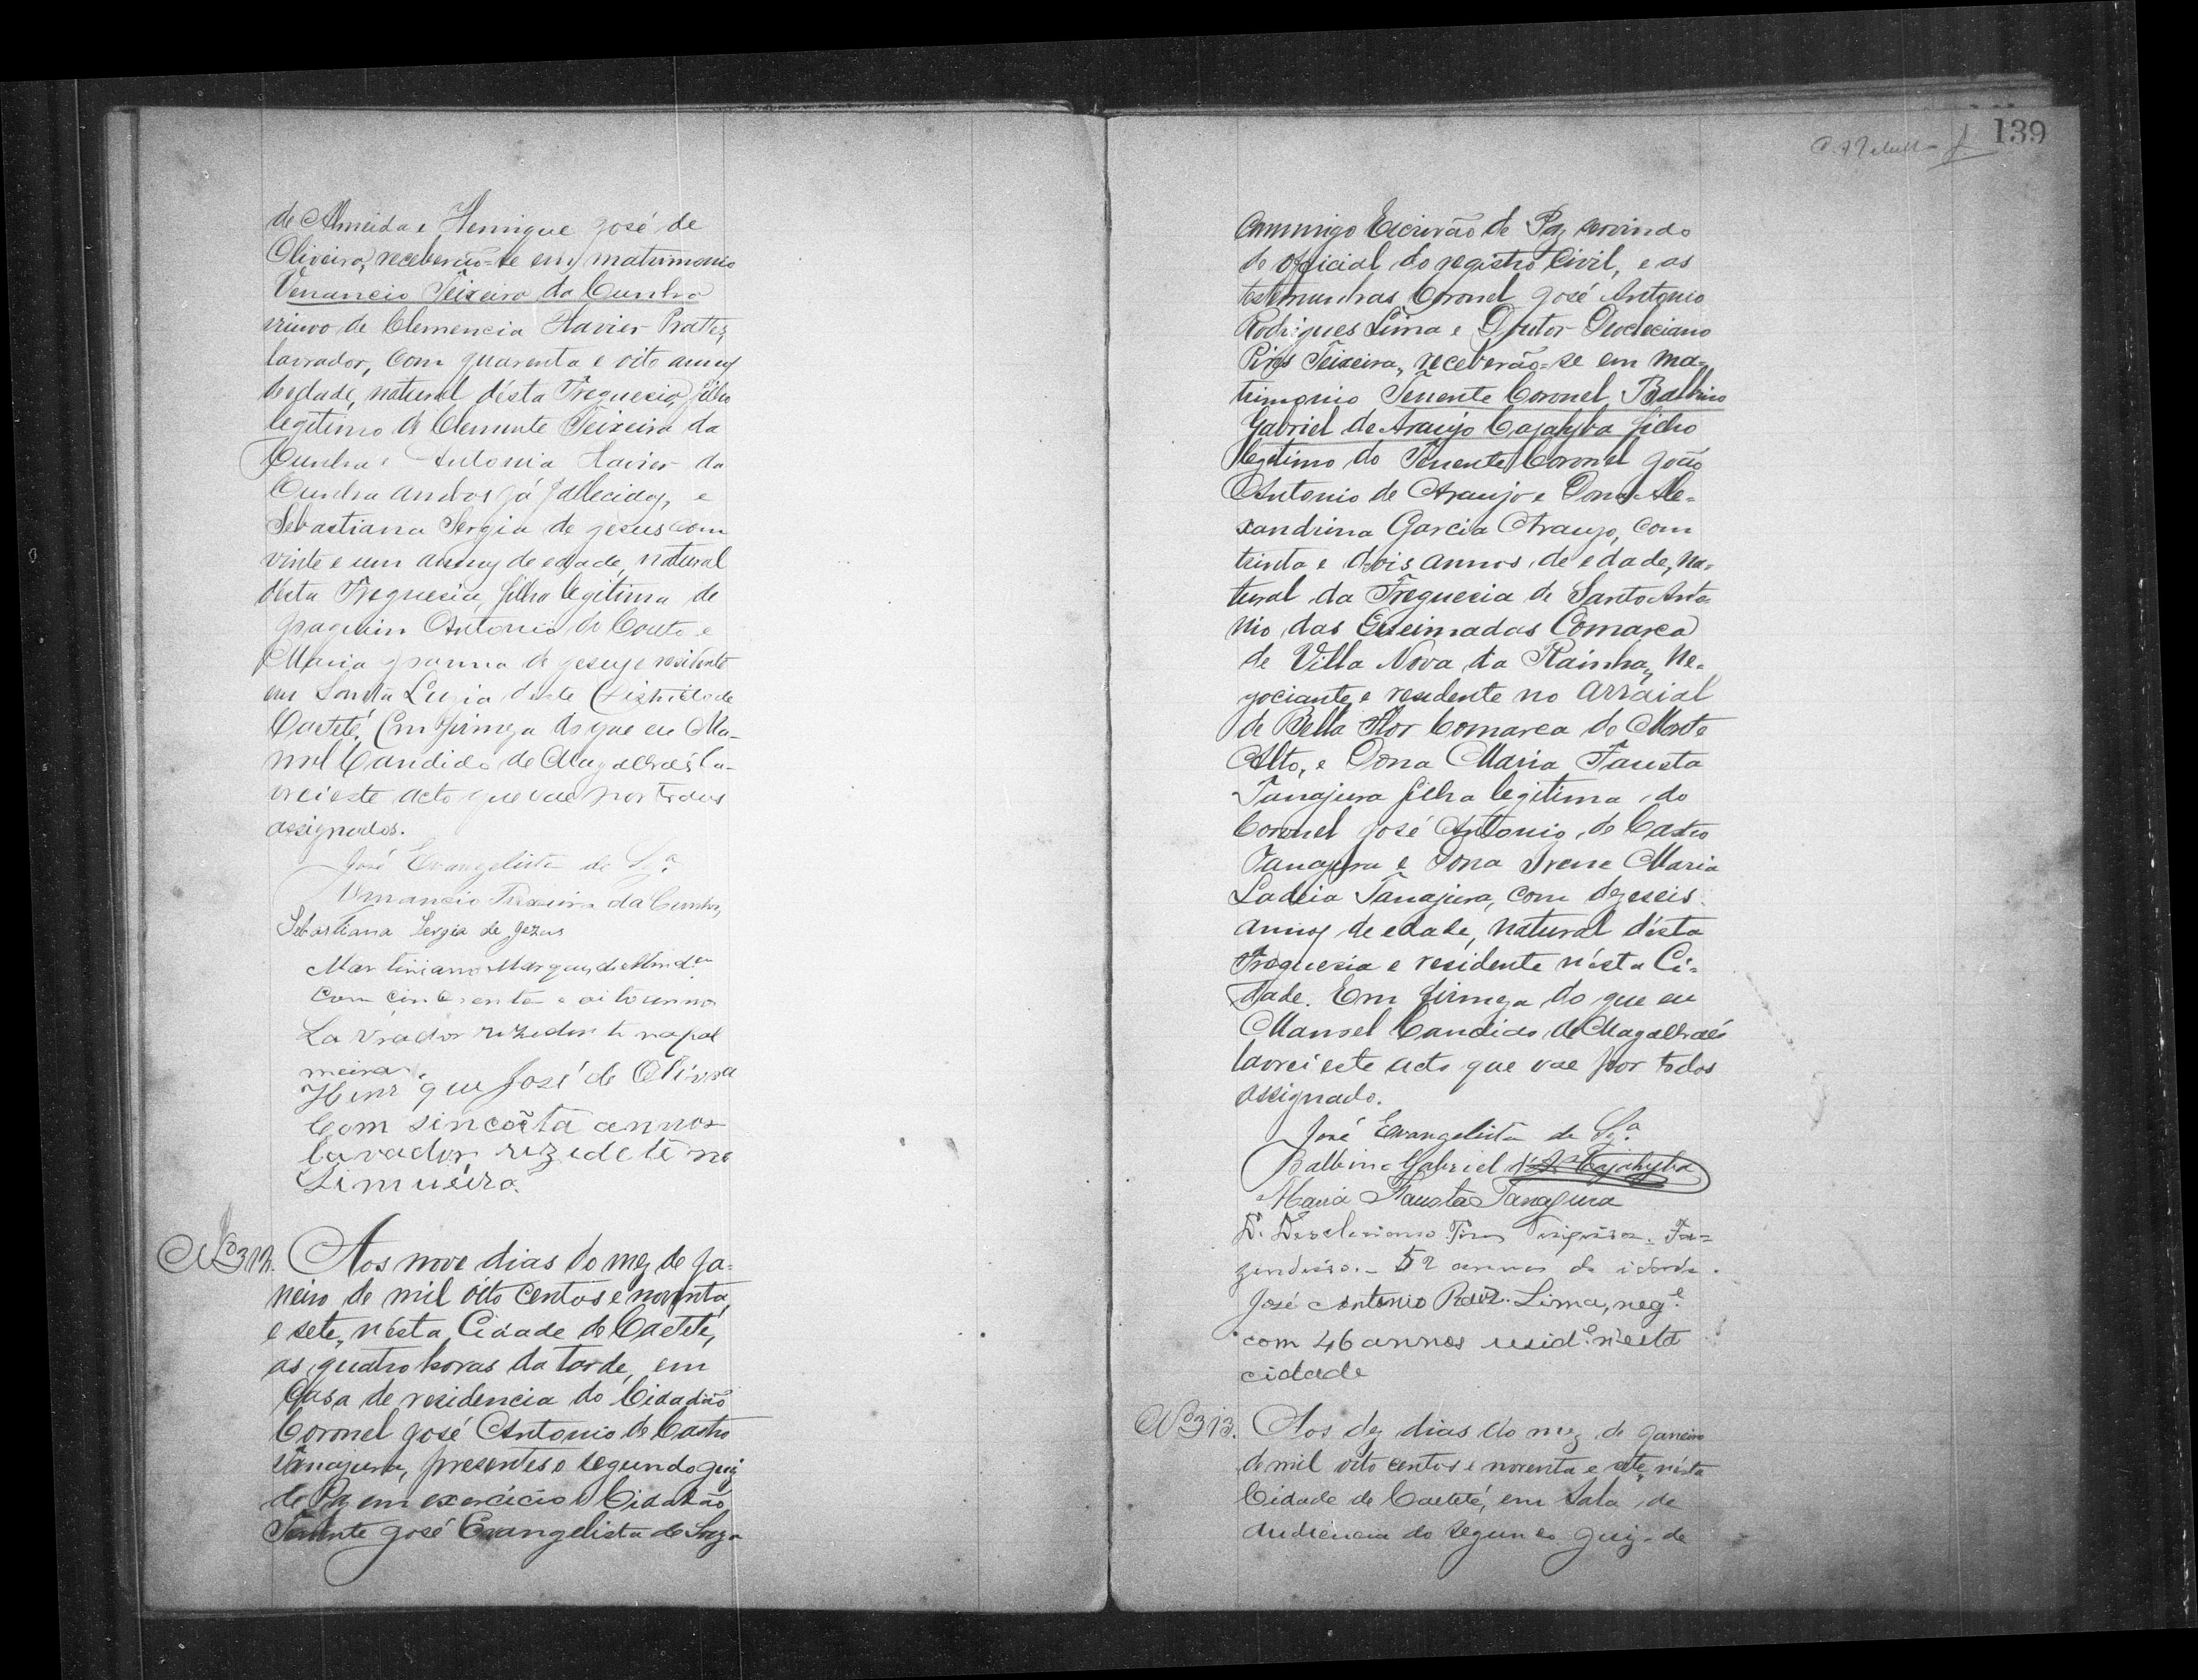 de Almeida e Henrique José de
Oliveira, receberão-se em matrimonio
Venancio Teixeira da Cunha
viuvo de Clemencia Xavier Prates,
lavrador, com quarenta e oito annos
de edade, natural désta Freguesia, filho
legitimo de Clemente Teixeira da
Cunha e Antonia Xavier da
Cunha ambos já fallecidos, e
Sebastiana Sergia de Jesus com
vinte e um annos de edade, natural
désta Freguesia, filha legitima de
Joaquim Antonio do Couto e
Maria Joanna de Jesus, e residente
em Santa Luzia deste Districto de
Caeteté. Em firmeza do que eu Ma-
noel Candido de Magalhães la-
vrei este acto que vae por todos
assignados.
José Evangelista de Sz.ª
Venancio Teixeira da Cunha,
Sebastiana Sergia de Jezus
Martiniano Marques de Almd.ª
com cincoenta e oito annos
Lavrador rezidente na pal
meira.
Henrique José de Olivera
Com sincoẽta annos
lavador rezidete no
Limueiro.
Nº 312. Aos nove dias do mez de Ja-
neiro de mil oito centos e noventa
e sete, nésta Cidade de Caeteté,
as quatro horas da tarde, em
Casa de residencia do Cidadão
Coronel José Antonio de Castro
Tanajura, presentes o segundo Juiz
de Paz em exercicio o Cidadão
Tenente José Evangelista de Souza
139
Commigo Escrivão de Paz servindo
de official do registro Civil, e as
testemunhas Coronel José Antonio
Rodrigues Lima e Doutor Deocleciano
Pires Teixeira, receberão-se em ma-
trimonio Tenente Coronel Balbino
Gabriel de Araujo Cajahyba filho
legitimo do Tenente Coronel João
Antonio de Araujo e Dona Ale-
xandrina Garcia Araujo, com
trinta e dois annos de edade, na-
tural da Freguesia de Santo Anto-
nio das Queimadas Comarca
de Villa Nova da Rainha, ne-
gociante e residente no Arraial
de Bella Flor Comarca de Monte
Alto, e Dona Maria Fausta
Tanajura filha legitima do
Coronel José Antonio de Castro
Tanajura e Dona Irene Maria
Ladeia Tanajura, com dezeseis
annos de edade, natural désta
Freguesia e residente nésta Ci-
dade. Em firmeza do que eu
Manoel Candido de Magalhães
lavrei este acto que vae por todos
assignado.
José Evangelista de Sz.ª
Balbino Gabriel d'A. Cajahyba
Maria Fausta Tanajura
D. Deocleciano Pires Teixeira. Fa-
zendeiro. - 52 annos de idade.
José Antonio Roiz. Lima, neg.e
com 46 annos resid.e n'esta
cidade
Nº 313. Aos dez dias do mez de Janeiro
de mil oito centos e noventa e sete, nésta
Cidade de Caeteté, em Sala de
Audiencia do segundo Juiz de